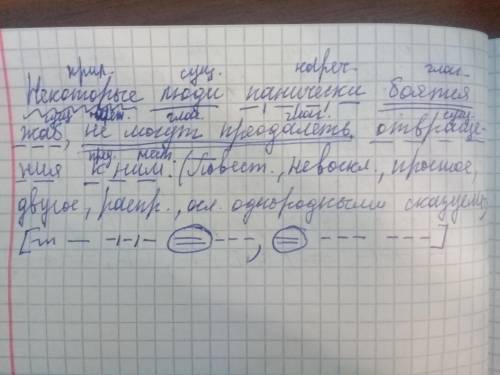 прил. сущ. нареч. глаг.
Некоторые люди панически боятся
сущ. глаг. глаг. сущ.
жаб, не могут преодалеть отвраще-
пред. мест.
ния к ним. (Повест., невоскл., простое,
двусос, распр., осл. однородными сказуемы
[ , ]